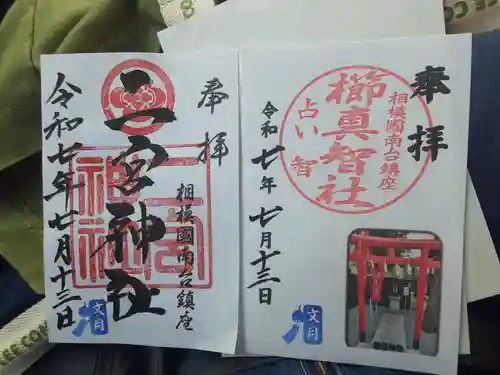 奉拝
相模國南台鎮座
二宮神社
二宮神社
令和七年七月十三日
文月
奉拝
相模國南台鎮座
櫛真智社
占い智
令和七年七月十三日
文月